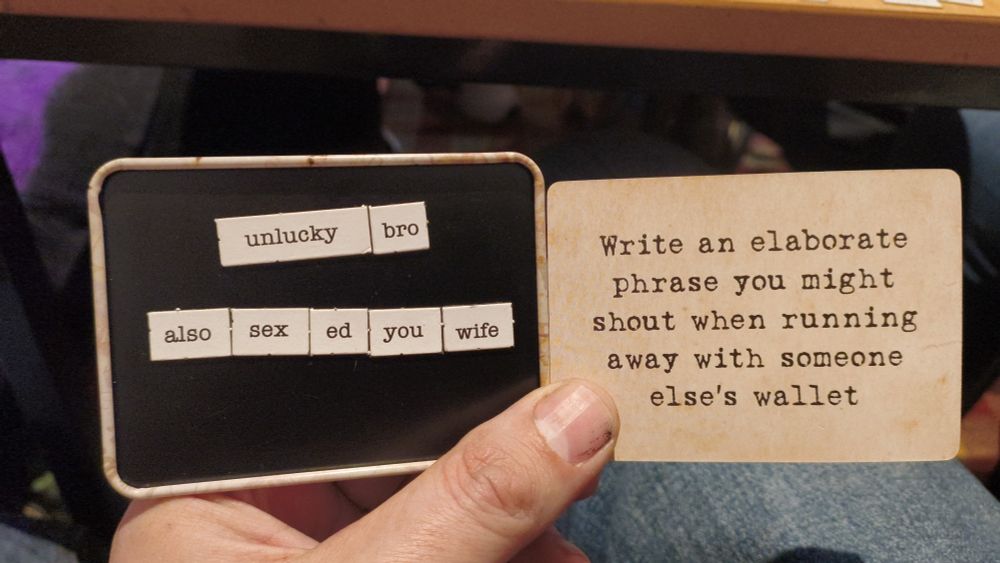 unlucky bro
also sex ed you wife
Write an elaborate
phrase you might
shout when running
away with someone
else's wallet